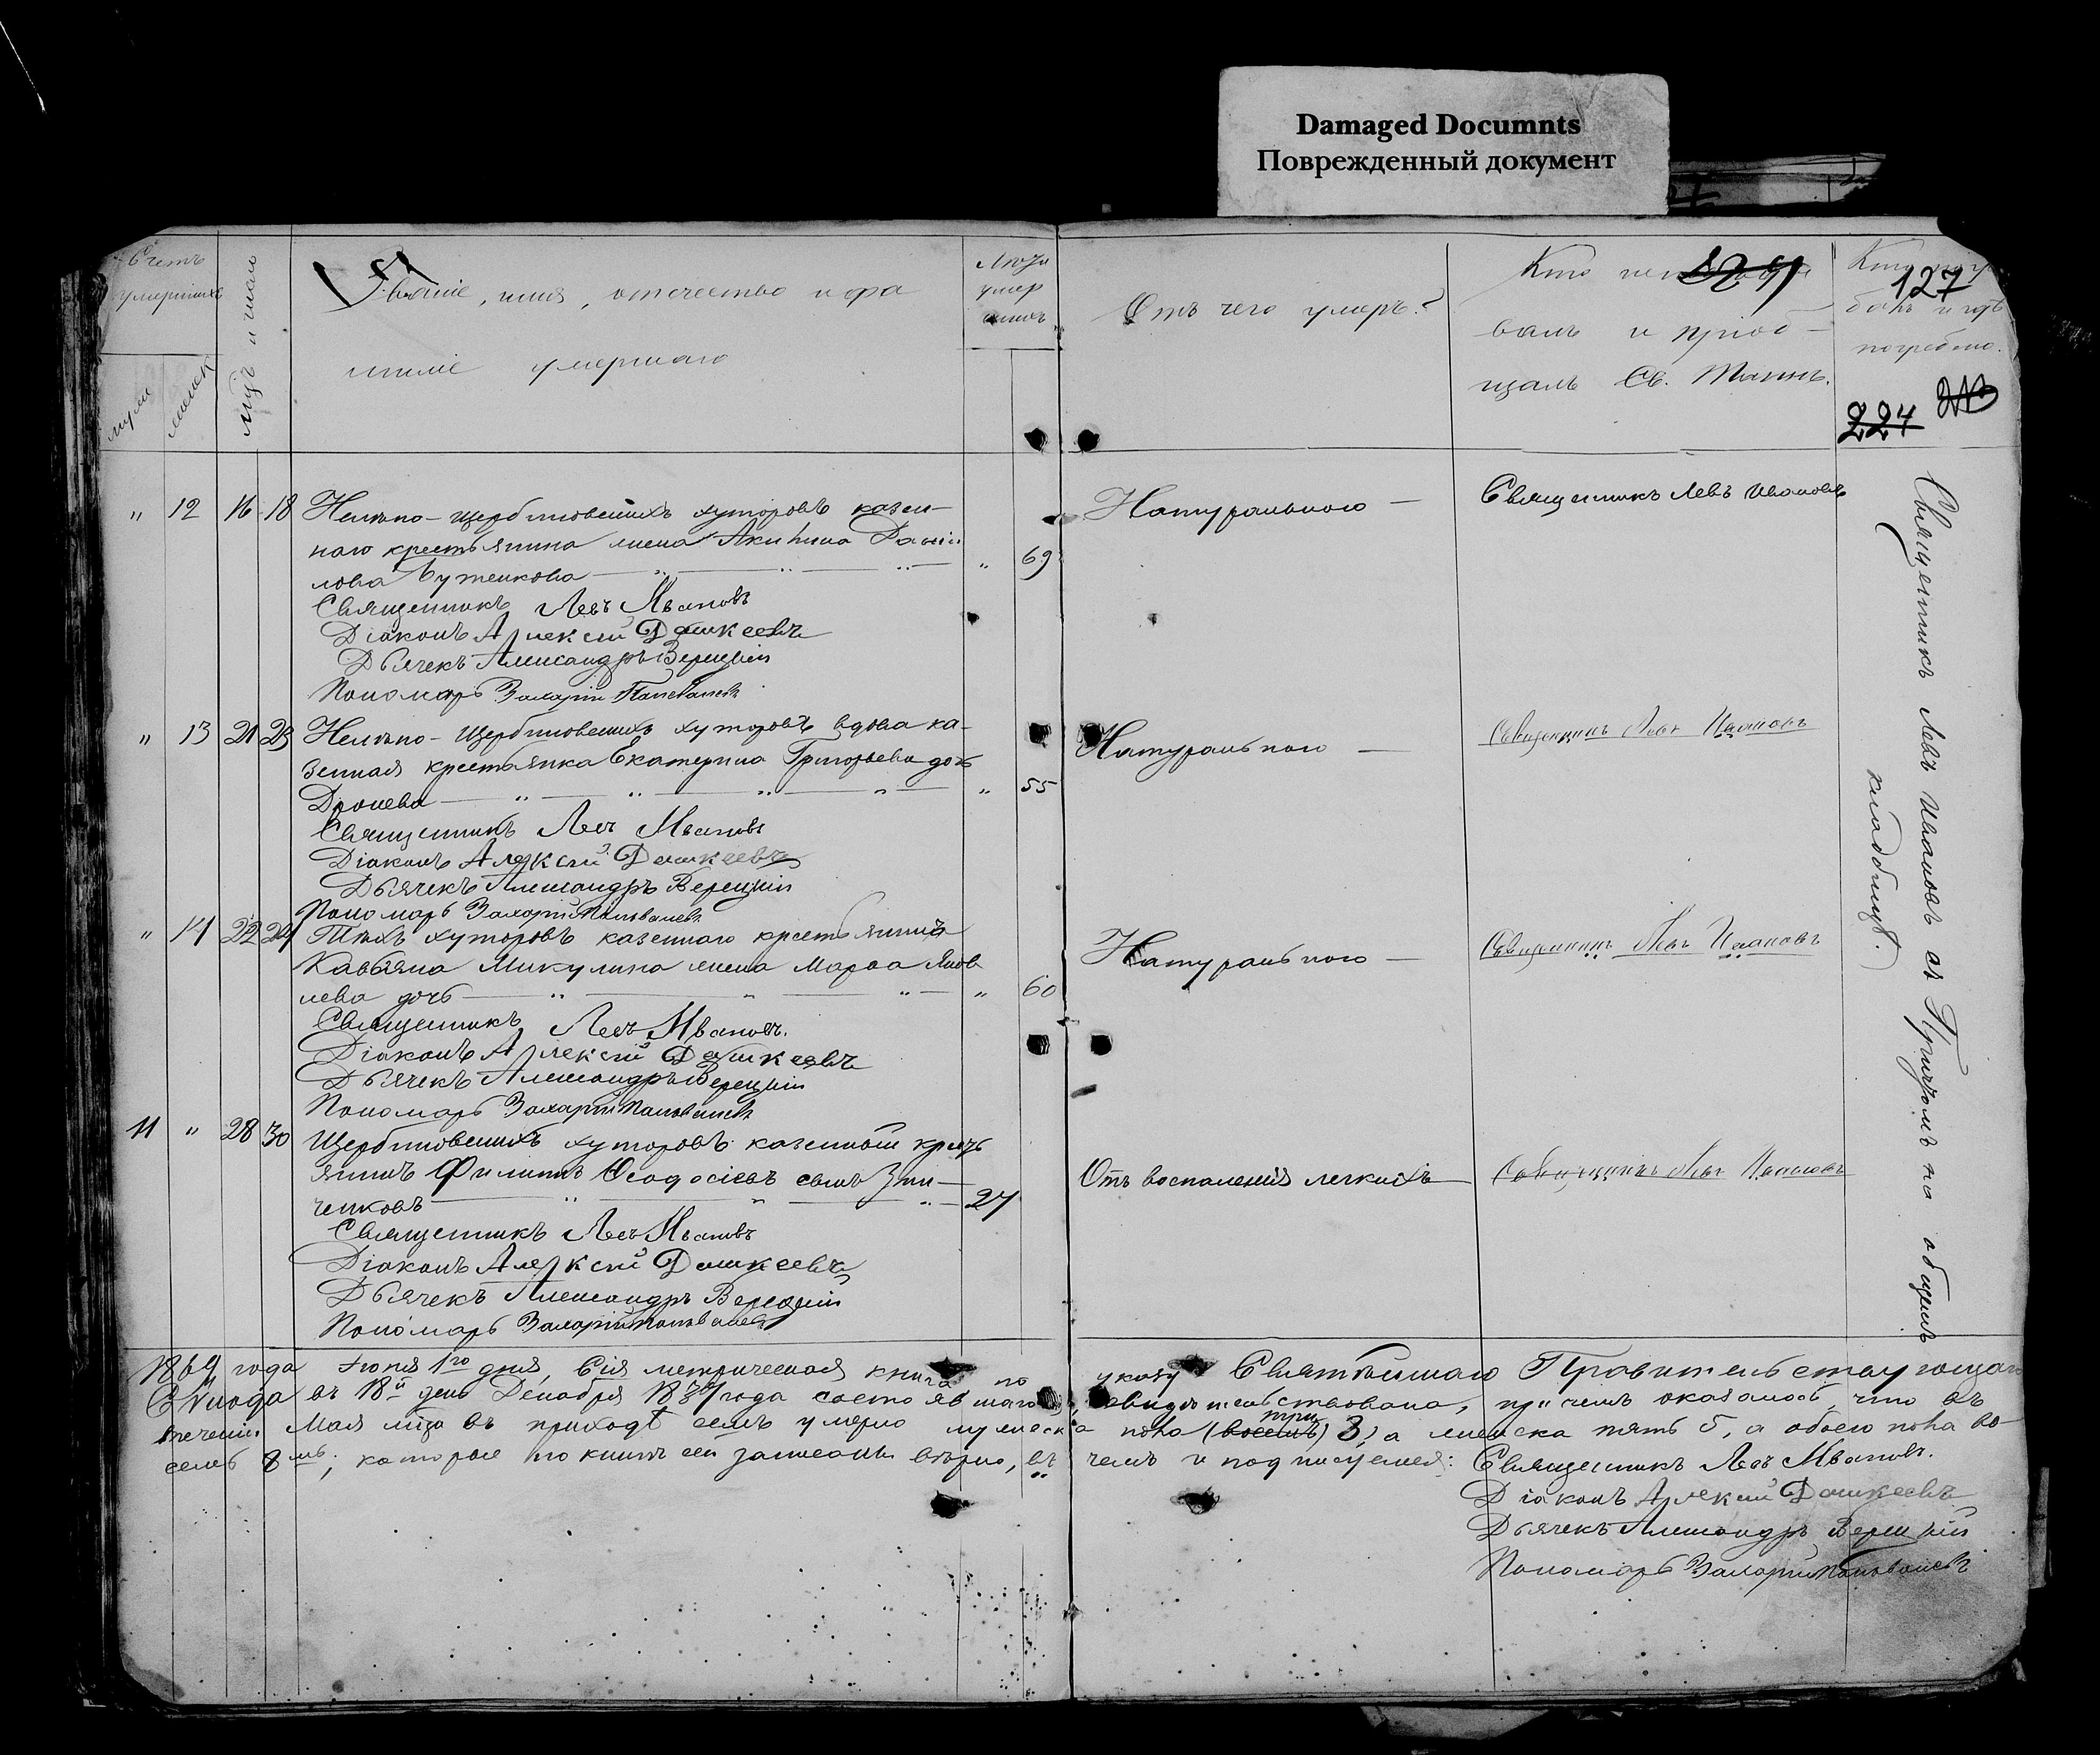 Damaged Documnts
Поврежденный документ
Счетъ
умершихъ
муж
женск
мцъ и число
Званіе, имя, отчество и фа
миліе умершаго
Лѣта
умер
шихъ
Отъ чего умеръ?
Кто
валъ и пріоб-
щалъ Св. Таинъ.
127
погребено.
224
" 12 16 18 Нелѣпо-Щербиновскихъ хуторовъ казен-
наго крестьянина жена Акилина Даніи
лова " 69
Священникъ Левъ Ивановъ
Діаконъ Алексій Дашкеевъ
Дьячекъ Александръ Верецкій
Пономарь Захарій
Натуральною —
Священникъ Левъ Ивановъ
" 13 21 23 Нелѣпо-Щербиновскихъ хуторовъ вдова ка-
зенная крестьянка Екатерина Григорьева дочь
Дронева " 55
Священникъ Левъ Ивановъ
Діаконъ Алексій Дашкеевъ
Дьячекъ Александръ Верецкій
Пономарь Захарій
Натуральною —
Священникъ Левъ Ивановъ
" 14 22 24 Тѣхъ хуторовъ казеннаго крестьянина
Касьяна Микулина жена Марѳа Яков
лева дочь " 60
Священникъ Левъ Ивановъ.
Діаконъ Алексій Дашкеевъ
Дьячекъ Александръ Верецкій
Пономарь Захарій
Натуральною —
Священникъ Левъ Ивановъ
11 " 28 30 Щербиновскихъ хуторовъ казенный кресть
янинъ Филиппъ Ѳеодосіевъ сынъ Зин-
ченковъ 27
Священникъ Левъ Ивановъ
Діаконъ Алексій Дашкеевъ
Дьячекъ Александръ Верецкій
Пономарь Захарій
Отъ воспаленія легкихъ
Священникъ Левъ Ивановъ
Священникъ Левъ Ивановъ съ Причтомъ на общемъ
кладбищѣ.
1869 года Іюня 1го дня, Сія метрическая книга по указу Святѣйшаго Правительствующаго
Сѵнода въ 18й день Декабря года состоявшагося, свидѣтельствована, при чемъ оказалось, что въ
теченіи Мая мца въ приходѣ семъ умерло мужеска пола (восемь) три 3, а женска пять 5, а обоего пола во-
семь 8мь; которые по книгѣ сей записаны вѣрно, въ чемъ и подписуемся: Священникъ Левъ Ивановъ.
Діаконъ Алексій Дашкеевъ
Дьячекъ Александръ Верецкій
Пономарь Захарій